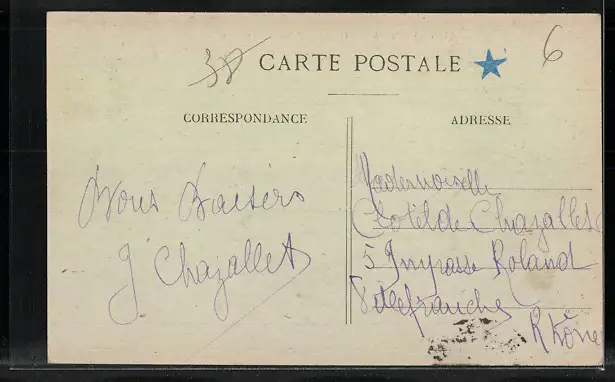 38
CARTE POSTALE
6
CORRESPONDANCE
ADRESSE
Bons Baisers
J Chazallet
Mademoiselle
Clotilde Chazallet
5 Impasse Roland
Villefranche
Rhône